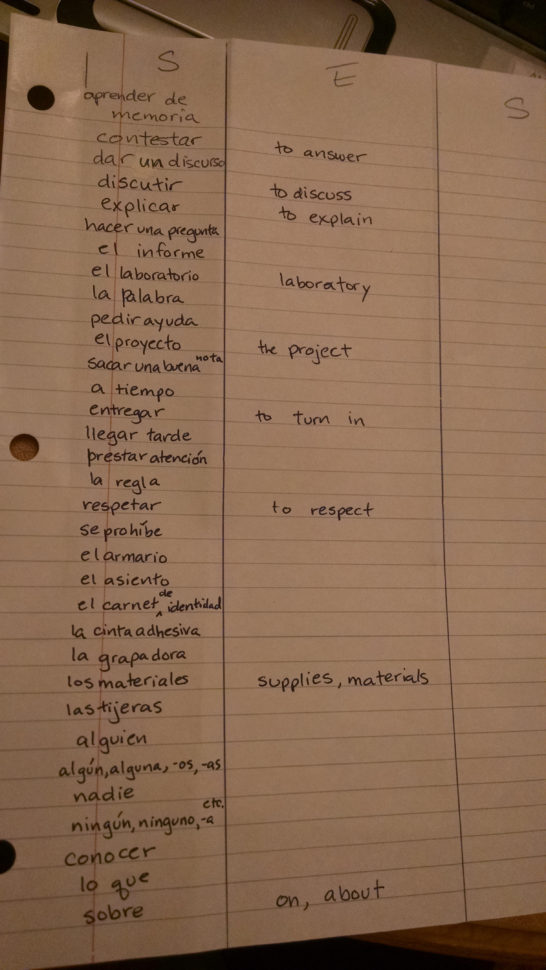 S E S
aprender de
memoria
contestar to answer
dar un discurso
discutir to discuss
explicar to explain
hacer una pregunta
el informe
el laboratorio laboratory
la palabra
pedir ayuda
el proyecto the project
sacar una buena nota
a tiempo
entregar to turn in
llegar tarde
prestar atención
la regla
respetar to respect
se prohíbe
el armario
el asiento
el carnet de identidad
la cinta adhesiva
la grapadora
los materiales supplies, materials
las tijeras
alguien
algún, alguna, -os, -as
nadie
ningún, ninguno, -a etc.
conocer
lo que
sobre on, about